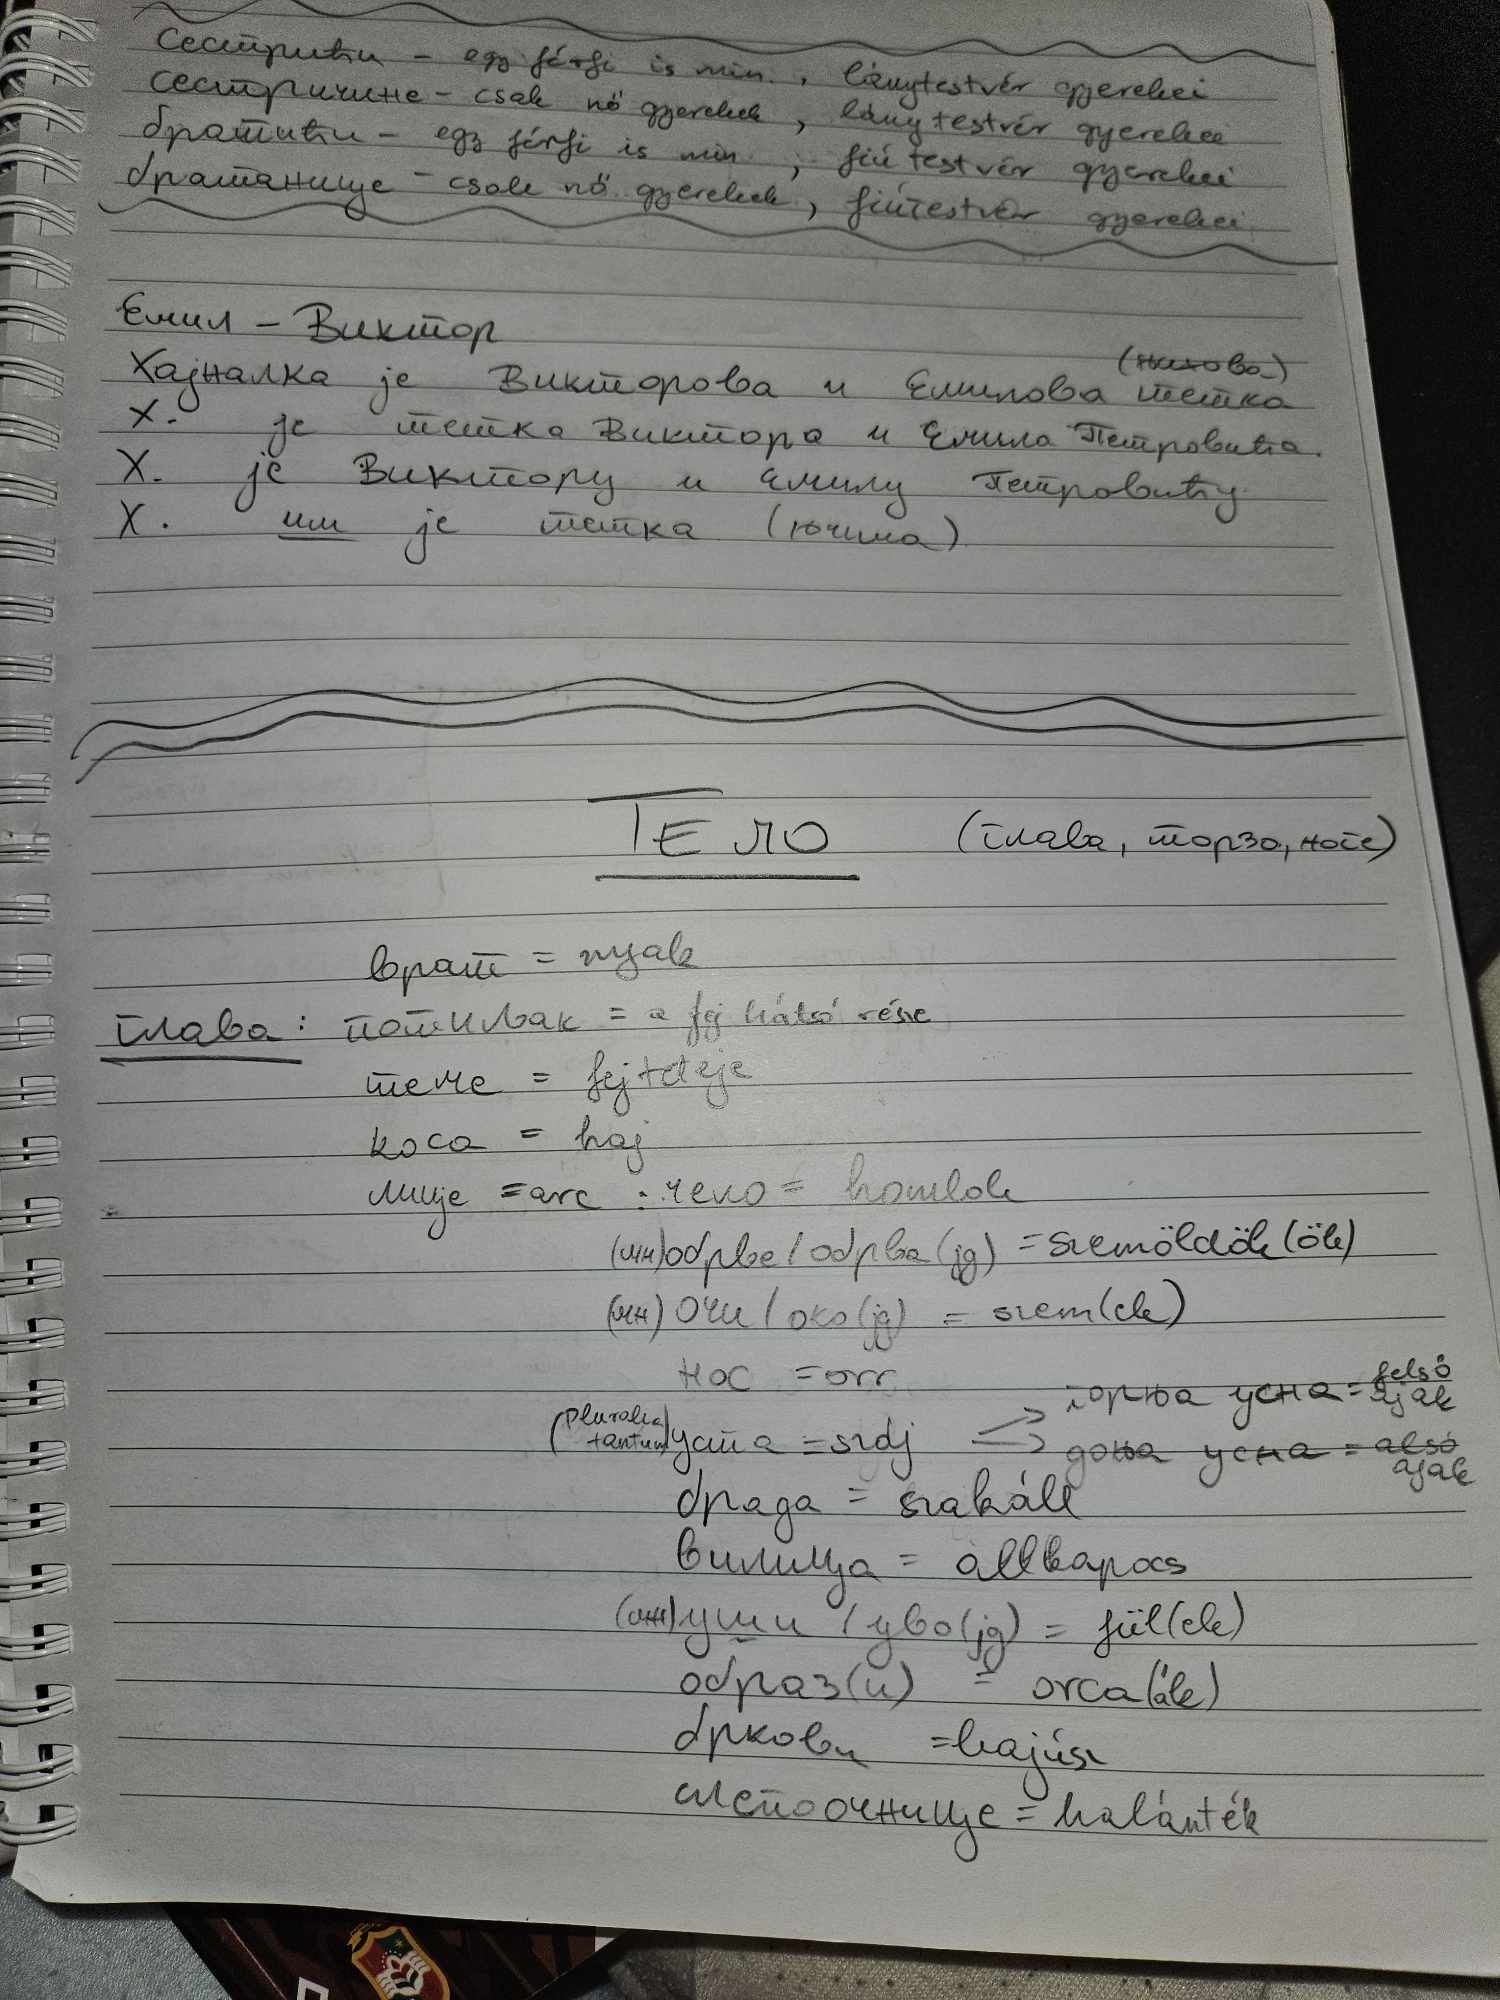 сестрићи - egy férfi is min., lánytestvér gyerekei
сестричине - csak nő gyerekek, lánytestvér gyerekei
братићи - egy férfi is min., fiútestvér gyerekei
братанице - csak nő gyerekek, fiútestvér gyerekei
Емил - Виктор
(њихова)
Хајналка је Викторова и Емилова тетка
Х. је тетка Виктора и Емила Петровића.
Х. је Виктору и Емилу Петровићу
Х. им је тетка (њима)
ТЕЛО (глава, торзо, ноге)
врат = nyak
глава: потиљак = a fej hátsó része
теме = fejteteje
коса = haj
лице = arc : чело = homlok
(мн) обрве / обрва (јд) = szemöldök(ök)
(мн) очи / око (јд) = szem(ek)
нос = orr
горња усна = felső ajak
(Pluralia tantum) уста = száj
доња усна = alsó ajak
брада = szakáll
вилица = állkapocs
(мн) уши / уво (јд) = fül(ek)
образ(и) = orca(ák)
бркови = bajúsz
слепоочнице = halánték